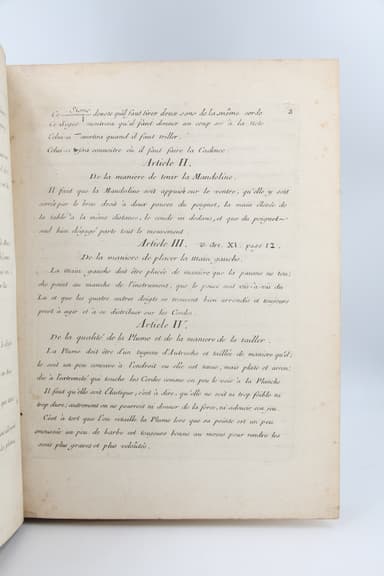 3
Ce Plume denote qu'il faut tirer deux sons de la même corde
Ce signe montrera qu'il faut donner un coup sec à la note
Celui-ci montra quand il faut triller.
Celui-ci fera connoitre où il faut faire la Cadence
Article II.
De la maniere de tenir la Mandoline.
Il faut que la Mandoline soit appuiée sur le ventre, qu'elle y soit
serrée par le bras droit à deux pouces du poignet, la main élevée de
la table à la même distance, le coude en dedans, et que du poignet
seul bien dégagé parte tout le mouvement
Article III. Art. XI. page 12.
De la maniere de placer la main gauche.
La main gauche doit être placée de maniere que la paume ne tou-
che point au manche de l'instrument, que le pouce soit vis-à-vis du
La et que les quatre autres doigts se trouvent bien arrondis et toujours
prêt à agir et à se distribuer sur les Cordes.
Article IV.
De la qualité de la Plume et de la maniere de la tailler.
La Plume doit être d'un tuyeau d'Autruche et taillée de maniere qu'el-
le soit un peu concave à l'endroit ou elle est tenue, mais plate et arron-
die à l'extremité qui touche les Cordes comme on peu le voir à la Planche
Il faut qu'elle soit Elastique, c'est à dire, qu'elle ne soit ni trop foible ni
trop dure; autrement on ne pourroit ni donner de la force, ni adoucir son jeu.
C'est à tort que l'on retaille la Plume lors que sa pointe est un peu
émoussée un peu de barbe est toujours bonne au moyen pour rendre les
sons plus graves et plus veloutés.